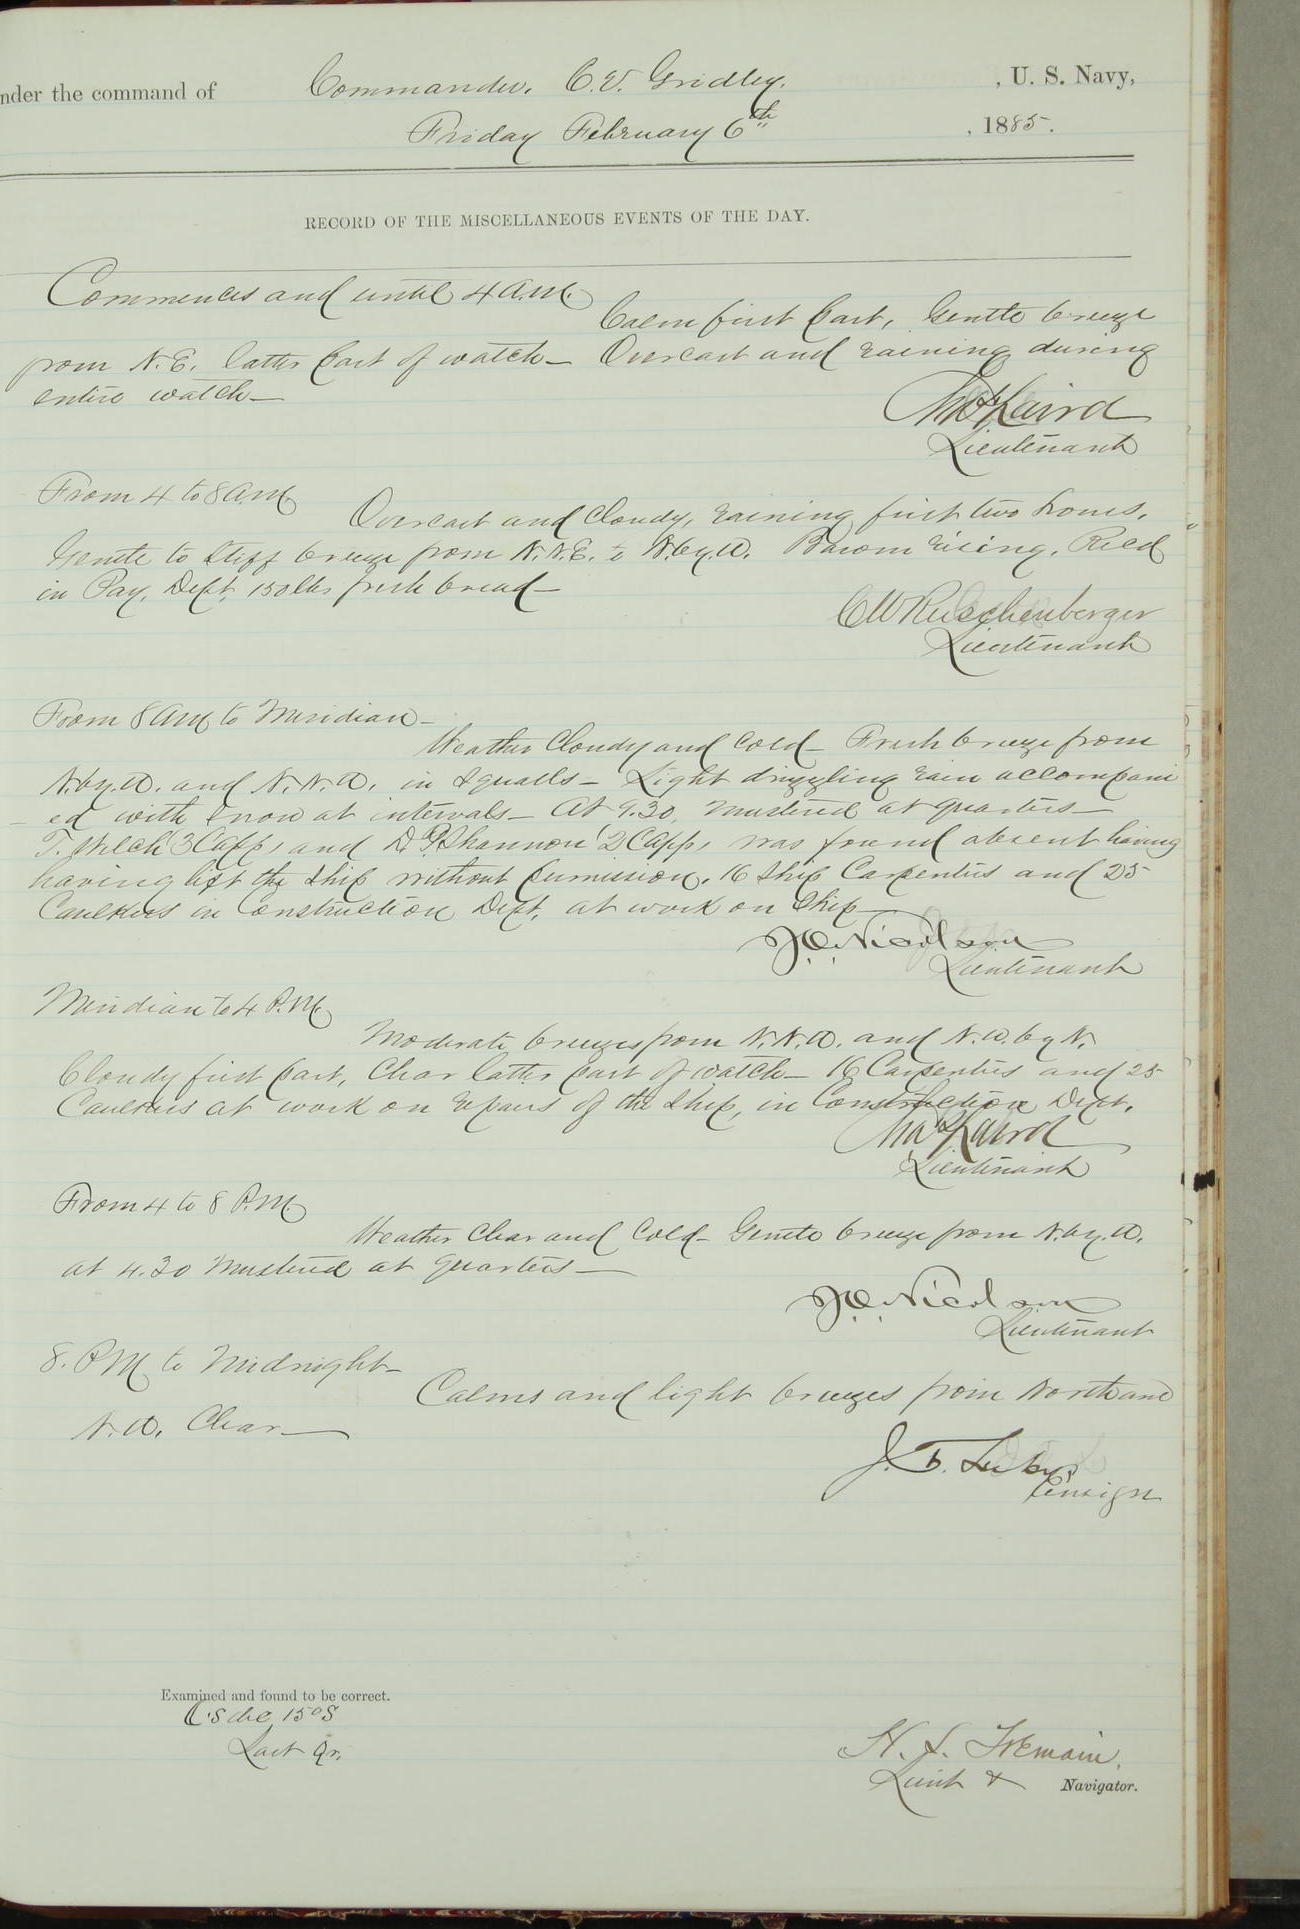 nder the command of Commander. C. V. Gridley. , U. S. Navy,
Friday February 6th , 1885.
RECORD OF THE MISCELLANEOUS EVENTS OF THE DAY.
Commences and until 4 A.M.
Calm first part, Gentle breeze
from N.E. latter part of watch— Overcast and raining during
entire watch—
Laird
Lieutenant
From 4 to 8 A.M.
Overcast and Cloudy, raining first two hours.
Gentle to Stiff breeze from N.N.E. to N.by.W. Barom rising. Recd
in Pay. Dept. 150 lbs fresh bread—
C W Ruschenberger
Lieutenant
From 8 AM to Meridian—
Weather Cloudy and Cold— Fresh breeze from
N.by.W. and N.N.W. in Squalls— Light drizzling rain accompani
ed with snow at intervals— At 9.30, mustered at quarters—
T. Welch 3 Capp, and D. P. Shannon 2 Capp, was found absent having
having left the Ship without permission. 16 Ship Carpenters and 25
Caulkers in Construction Dept. at work on Ship—
Nicolson
Lieutenant
Meridian to 4 P.M.
Moderate breezes from N.N.W. and N.W. by N.
Cloudy first part, Clear latter part of watch— 16 Carpenters and 25
Caulkers at work on repairs of the Ship, in Construction Dept.
Laird
Lieutenant
From 4 to 8 P.M.
Weather Clear and Cold— Gentle breeze from N.by.W.
at 4.30 Mustered at quarters—
Nicolson
Lieutenant
8. PM to Midnight—
Calms and light breezes from North and
N.W. Clear—
J. T. Luby,
Ensign
Examined and found to be correct.
15° S
Last Qr.
H. S. Tremain.
Lieut & Navigator.